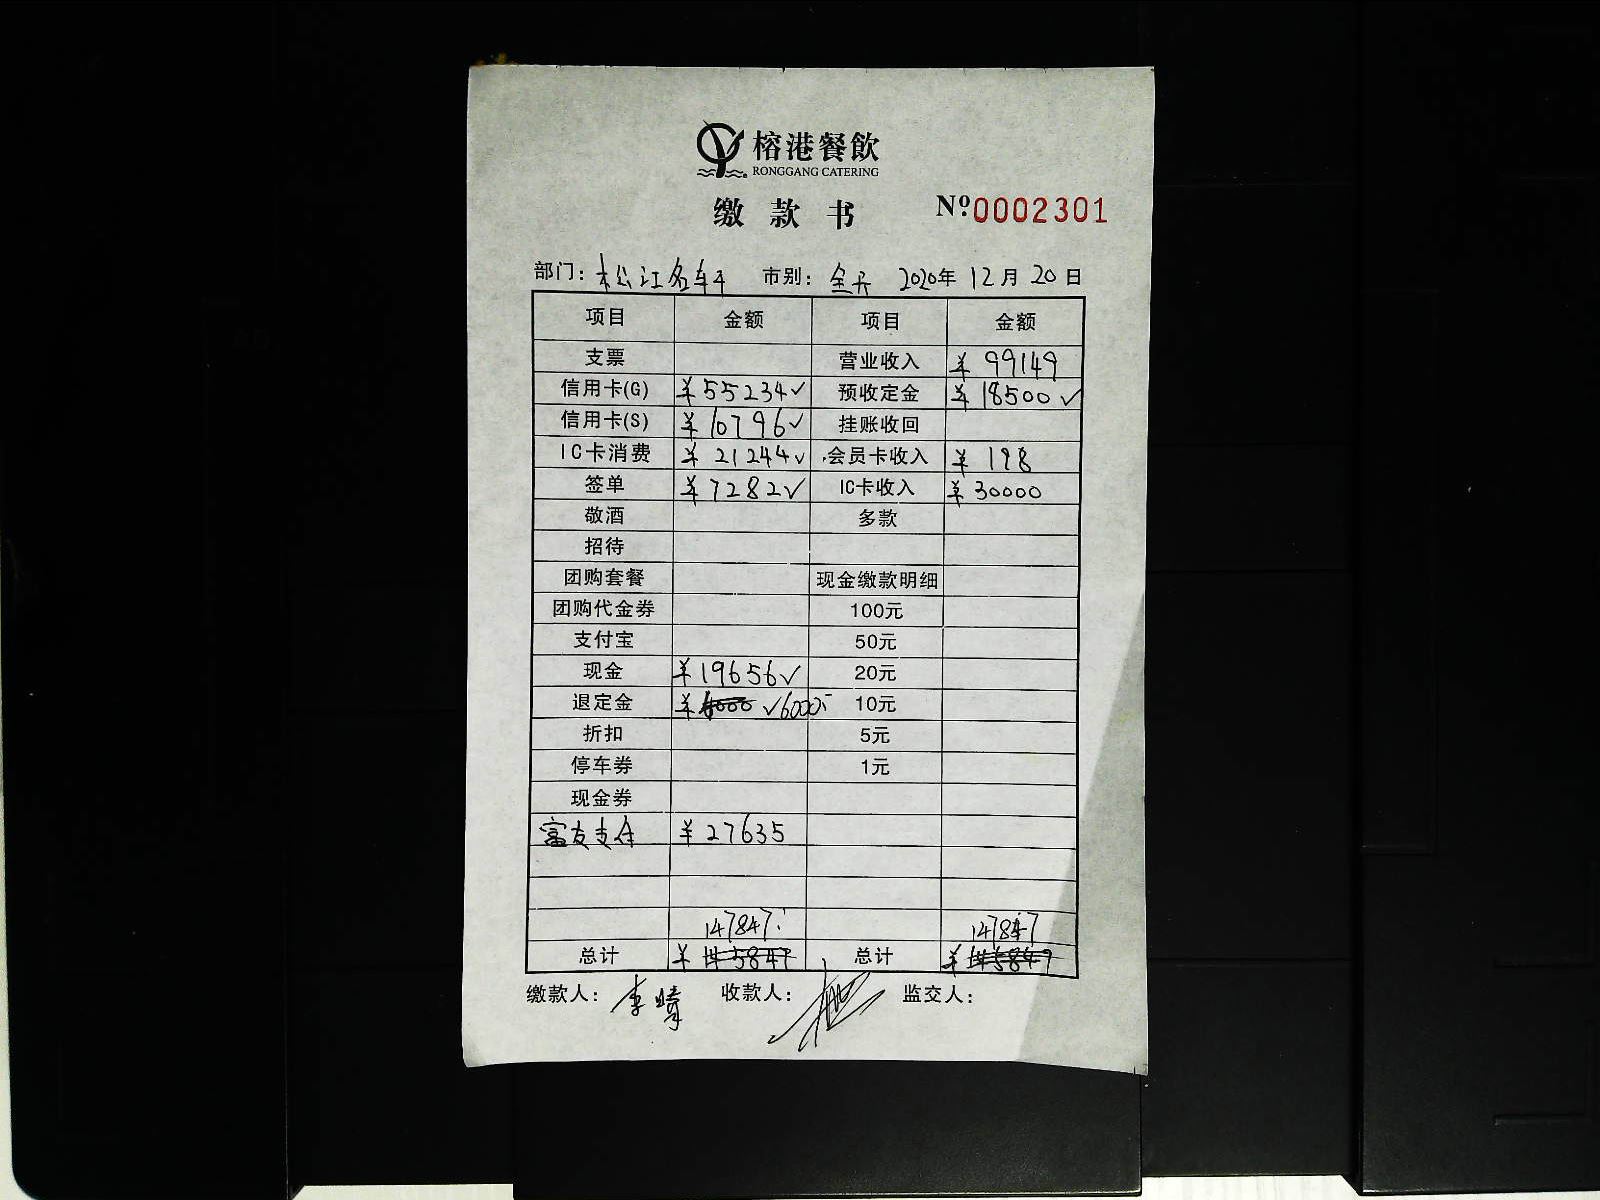 榕港餐飲
RONGGANG CATERING
缴款书 Nº0002301
部门：松江名轩 市别：全天 2020年12月20日
项目 金额 项目 金额
支票 营业收入 ¥99149
信用卡(G) ¥55234✓ 预收定金 ¥18500✓
信用卡(S) ¥10796✓ 挂账收回
IC卡消费 ¥21244✓ 会员卡收入 ¥198
签单 ¥7282✓ IC卡收入 ¥30000
敬酒 多款
招待
团购套餐 现金缴款明细
团购代金券 100元
支付宝 50元
现金 ¥19656✓ 20元
退定金 ¥ ✓6000 10元
折扣 5元
停车券 1元
现金券
富友支付 ¥27635
147847 147847
总计 ¥ 总计 ¥
缴款人： 收款人： 监交人：